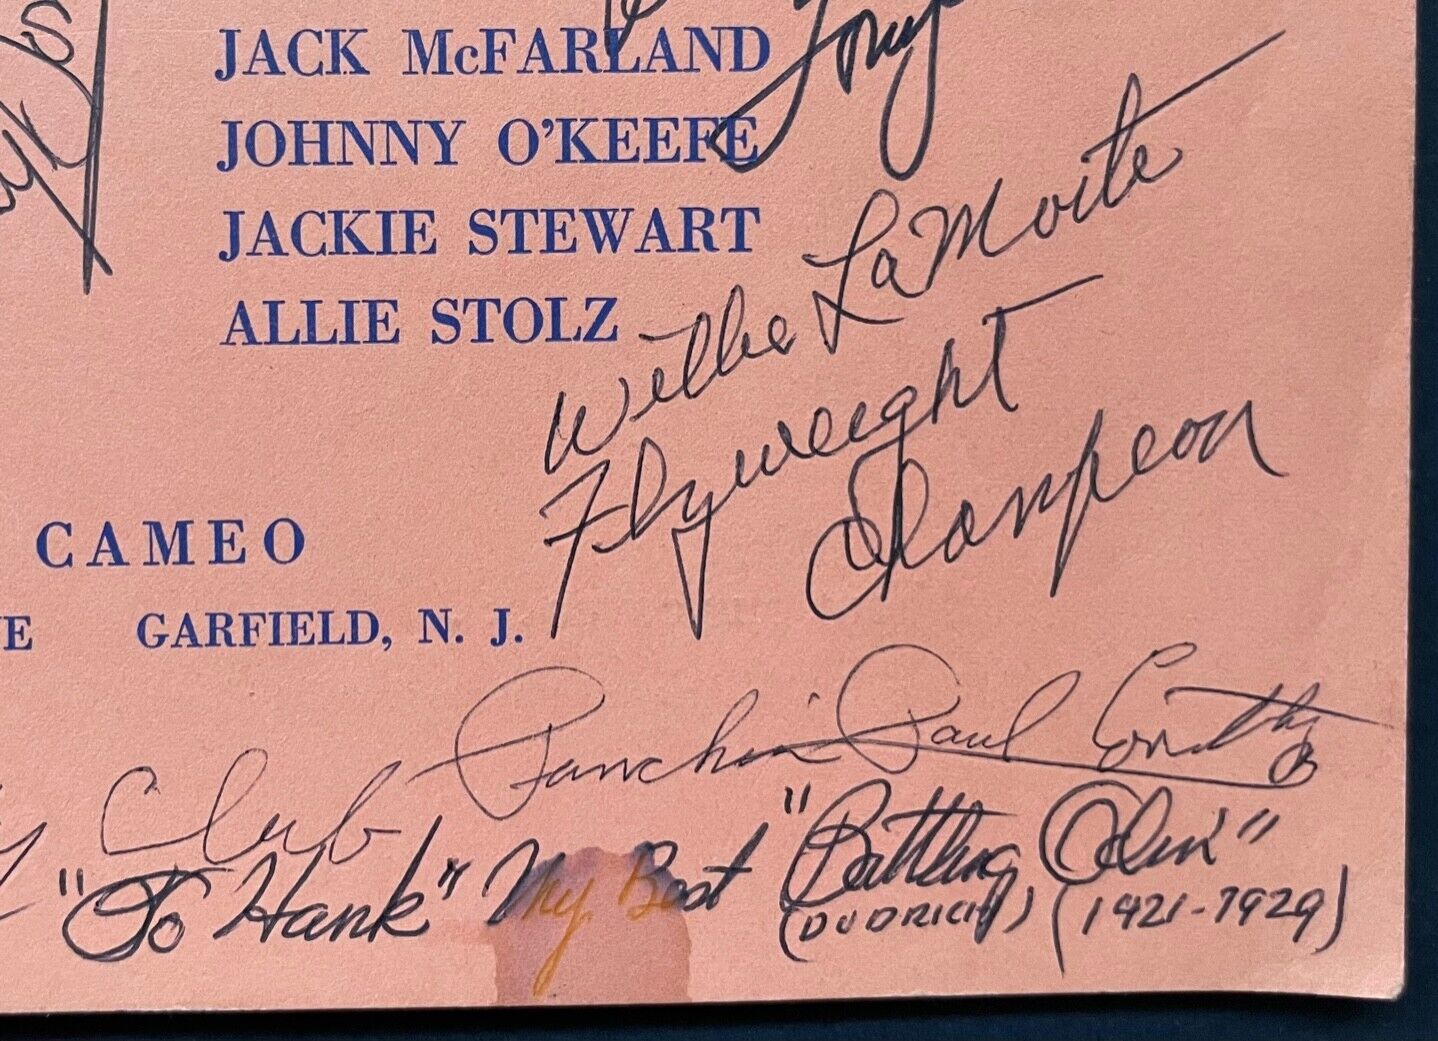 JACK McFARLAND
Tony
JOHNNY O'KEEFE
JACKIE STEWART
ALLIE STOLZ
Willie LaMorte
Flyweight
Champion
CAMEO
GARFIELD, N. J.
Club
Paul
"To Hank" My Best "Battling
(DUDRICH) (1921-1929)